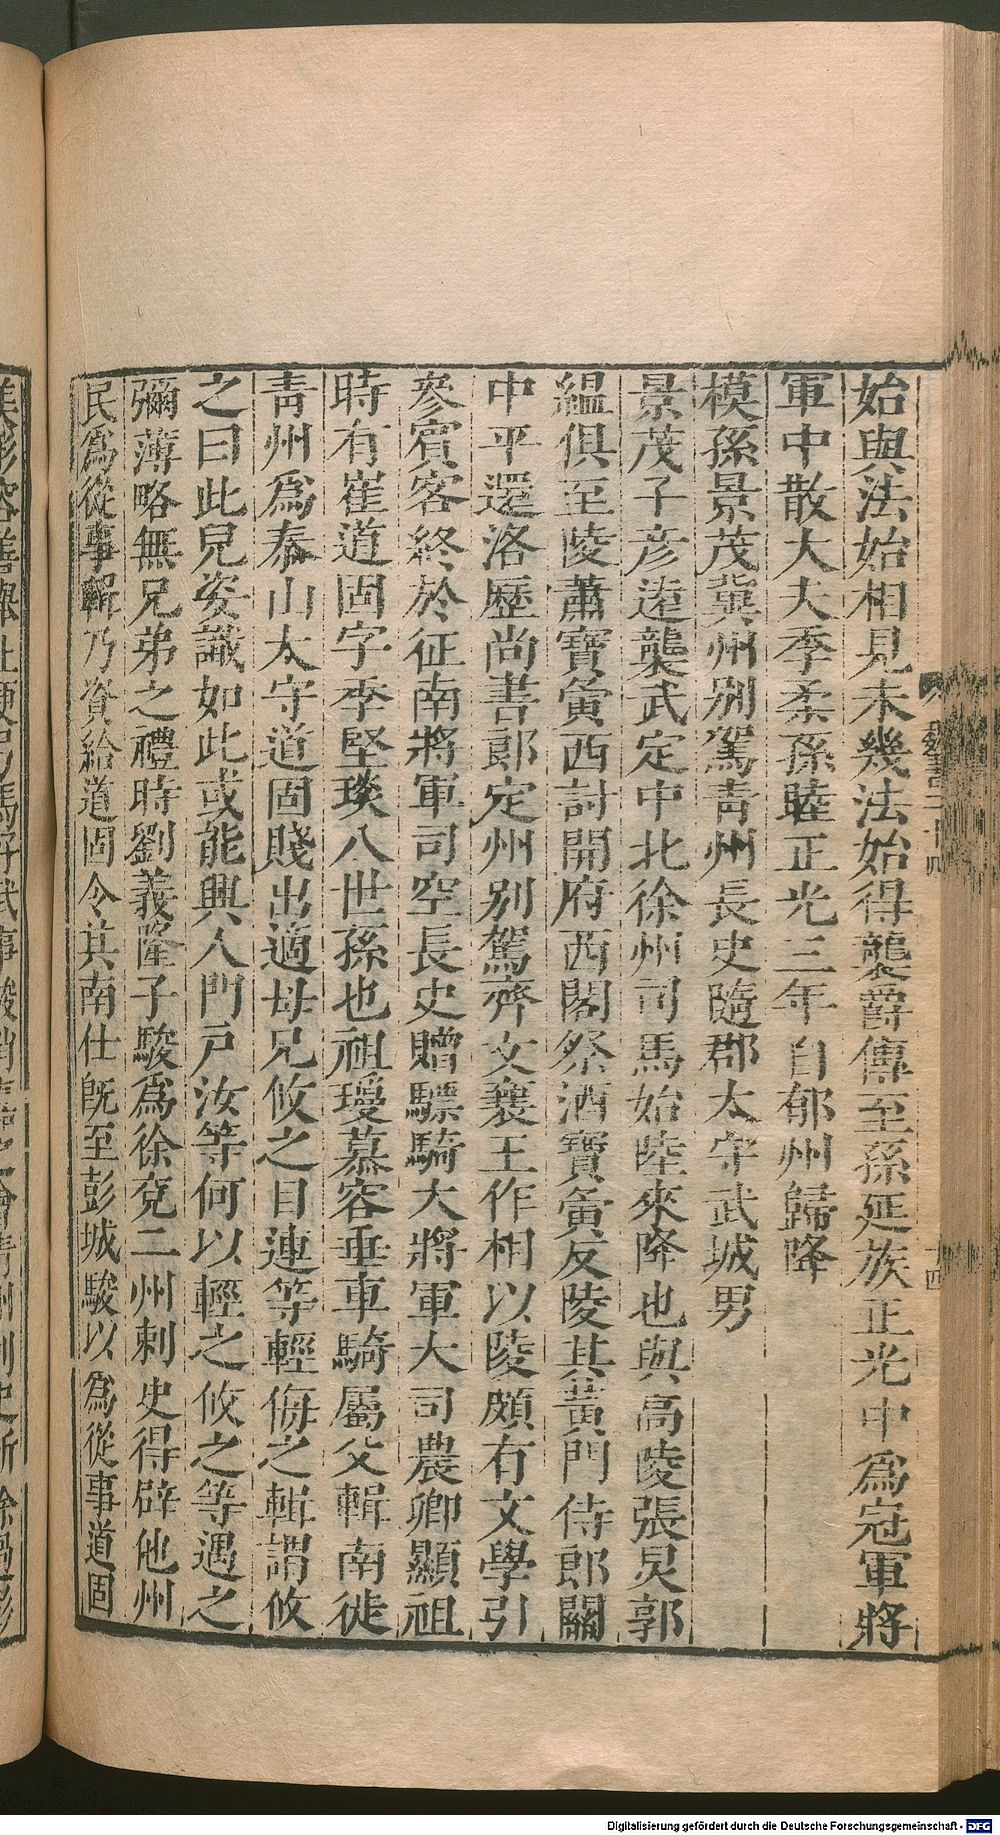 始與法始相見未幾法始得襲爵傳至孫延族正光中爲冠軍將
軍中散大夫季柔孫睦正光三年自郁州歸降
模孫景茂冀州別駕青州長史隨郡太守武城男
景茂子彦遠襲武定中北徐州司馬始陸來降也與高陵張炅郭
縕俱至陵蕭寶夤西討開府西閣祭酒寶夤反陵其黃門侍郎關
中平還洛歷尚書郎定州別駕齊文襄王作相以陵頗有文學引
參賓客終於征南將軍司空長史贈驃騎大將軍大司農卿顯祖
時有崔道固字季堅琰八世孫也祖瓊慕容垂車騎屬父輯南徙
青州爲泰山太守道固賤出適母兄攸之目連等輕侮之輯謂攸
之曰此兒姿識如此或能興人門戶汝等何以輕之攸之等遇之
彌薄略無兄弟之禮時劉義隆子駿爲徐兗二州刺史得辟他州
民爲從事輯乃資給道固令其南仕旣至彭城駿以爲從事道固
魏書二十四
十四
Digitalisierung gefördert durch die Deutsche Forschungsgemeinschaft - DFG